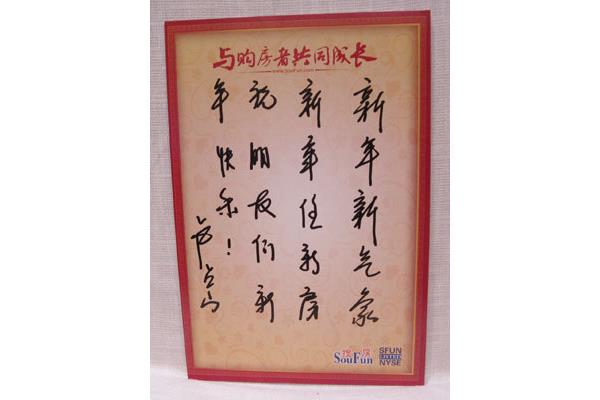 与购房者共同成长
www.SouFun.com
新年新气象
新年住新房
祝朋友们新
年快乐!
搜房
SouFun
SFUN
LISTED
NYSE